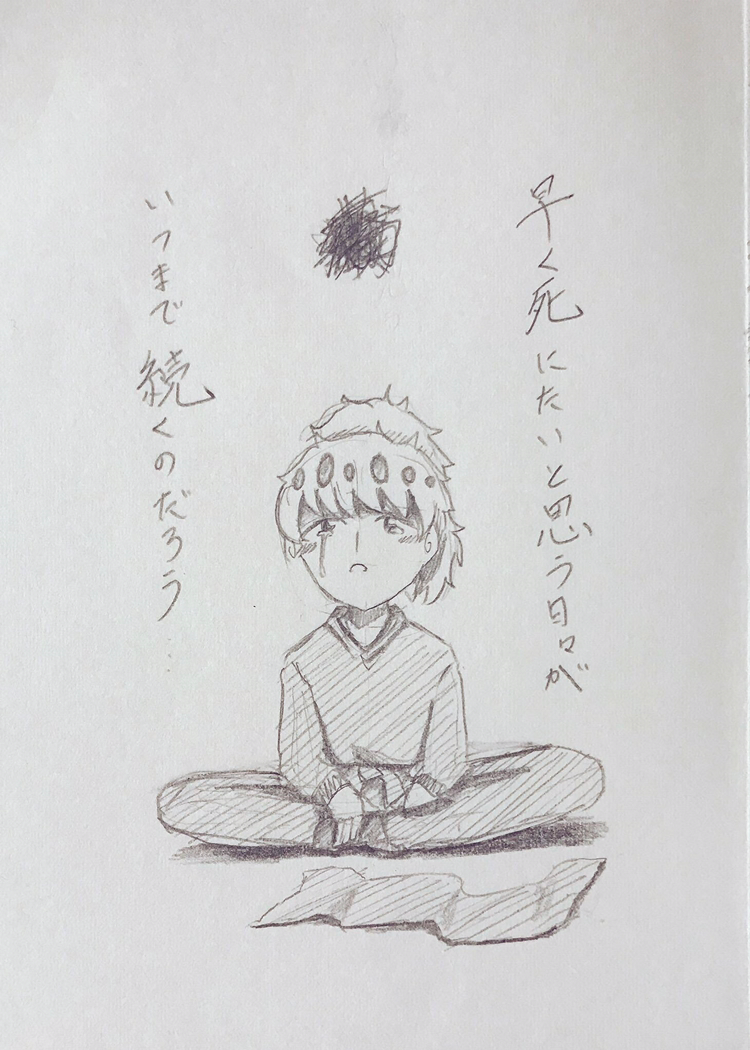 早く死にたいと思う日々が
いつまで続くのだろう…